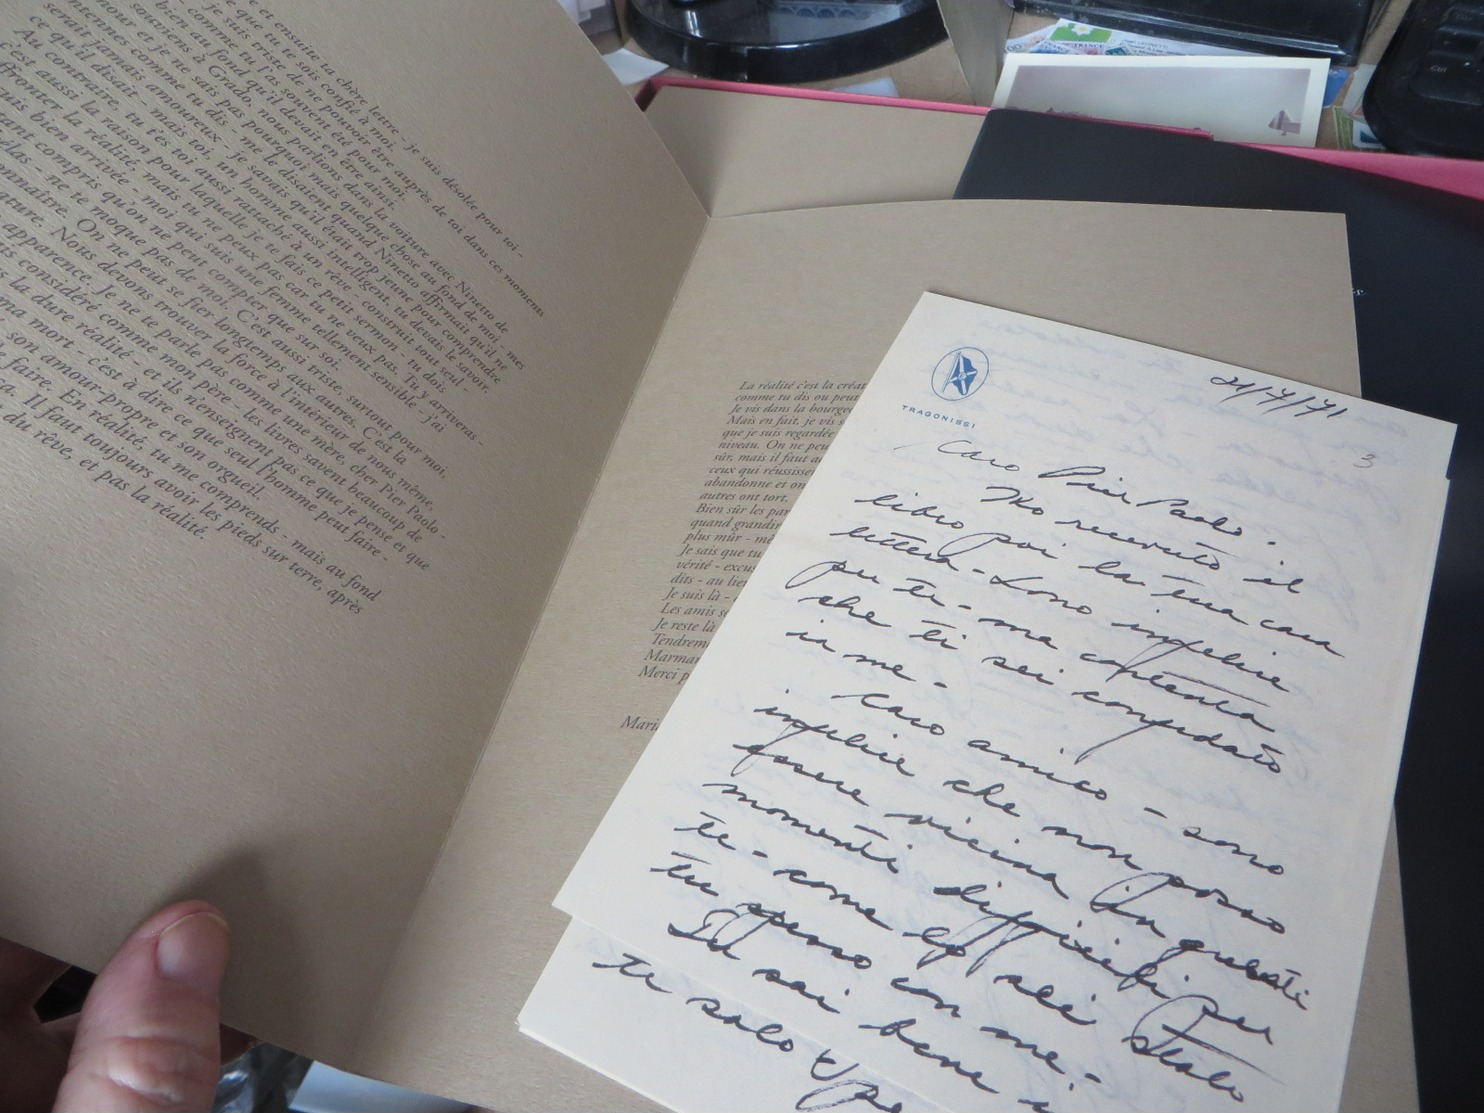 et ensuite ta chère lettre - je suis désolée pour toi -
que tu te sois confié à moi.
je suis triste de ne pouvoir être auprès de toi dans ces moments
comme tu l'as souvent été pour moi.
bien au fond qu'il devait en être ainsi.
souviens à Grado, nous parlions dans la voiture avec Ninetto de
amour et je ne sais pas pourquoi mais quelque chose au fond de moi, mes
comme tu dis - me le disaient quand Ninetto affirmait qu'il ne
serait jamais amoureux - je savais qu'il était trop jeune pour comprendre
ce qu'il disait - mais toi, un homme aussi intelligent, tu devais le savoir.
Au contraire, tu t'es toi aussi rattaché à un rêve - construit tout seul -
c'est aussi la raison pour laquelle je te fais ce petit sermon - tu dois
la réalité, mais tu ne peux pas car tu ne veux pas. Tu y arriveras -
bien arrivée - moi qui suis une femme tellement sensible - j'ai
compris qu'on ne peut compter que sur soi.
hélas - ne te moque pas de moi. C'est aussi triste, surtout pour moi,
On ne peut se fier longtemps aux autres. C'est la
Nous devons trouver la force à l'intérieur de nous même,
apparence. Je ne te parle pas comme une mère, cher Pier Paolo -
considéré comme mon père - les livres savent beaucoup de
la dure réalité - et ils n'enseignent pas ce que je pense et que
ma mort - c'est à dire ce que seul l'homme peut faire -
son amour-propre et son orgueil.
faire. En réalité, tu me comprends - mais au fond
Il faut toujours avoir les pieds sur terre, après
du rêve, et pas la réalité.
La réalité c'est la créat
comme tu dis ou peut
Je vis dans la bourgeo
Mais en fait, je vis s
que je suis regardée
niveau. On ne peu
sûr, mais il faut a
ceux qui réussisse
abandonne et on
autres ont tort.
Bien sûr les par
quand grandir
plus mûr - mê
Je sais que tu
vérité - excus
dits - au lie
Je suis là -
Les amis s
Je reste là
Tendrem
Marmar
Merci p
Mari
TRAGONISSI
21/7/71
3
Caro Pier Paolo.
Ho ricevuto il
libro poi la tua cara
lettera - Sono infelice
per te - ma contenta
che ti sei confidato
in me -
Caro amico - sono
infelice che non posso
essere vicina in questi
momenti difficili per
te - come lo sei stato
tu spesso con me -
Tu sai bene i